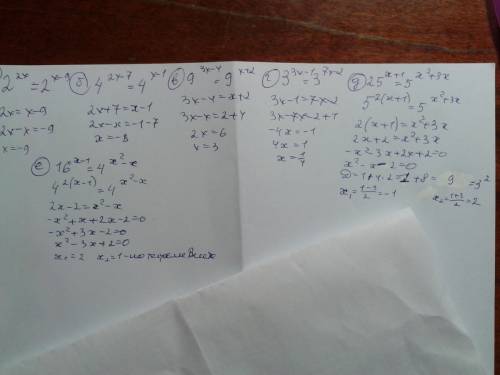 2^{2x}=2^{x-9}
2x=x-9
2x-x=-9
x=-9
б) 4^{2x-7}=4^{x-1}
2x+7=x-1
2x-x=-1-7
x=-8
в) 9^{3x-4}=9^{x+2}
3x-4=x+2
3x-x=2+4
2x=6
x=3
г) 3^{3x-1}=3^{7x-2}
3x-1=7x-2
3x-7x=-2+1
-4x=-1
4x=1
x=1/4
д) 25^{x+1}=5^{x²+3x}
5^{2(x+1)}=5^{x²+3x}
2(x+1)=x²+3x
2x+2=x²+3x
-x²-3x+2x+2=0
x²-x-2=0
D=1+4·2=1+8=9=3²
x₁=(1-3)/2=-1 x₂=(1+3)/2=2
е) 16^{x-1}=4^{x²-x}
4^{2(x-1)}=4^{x²-x}
2x-2=x²-x
-x²+x+2x-2=0
-x²+3x-2=0
x²-3x+2=0
x₁=2 x₂=1-по теореме Виета